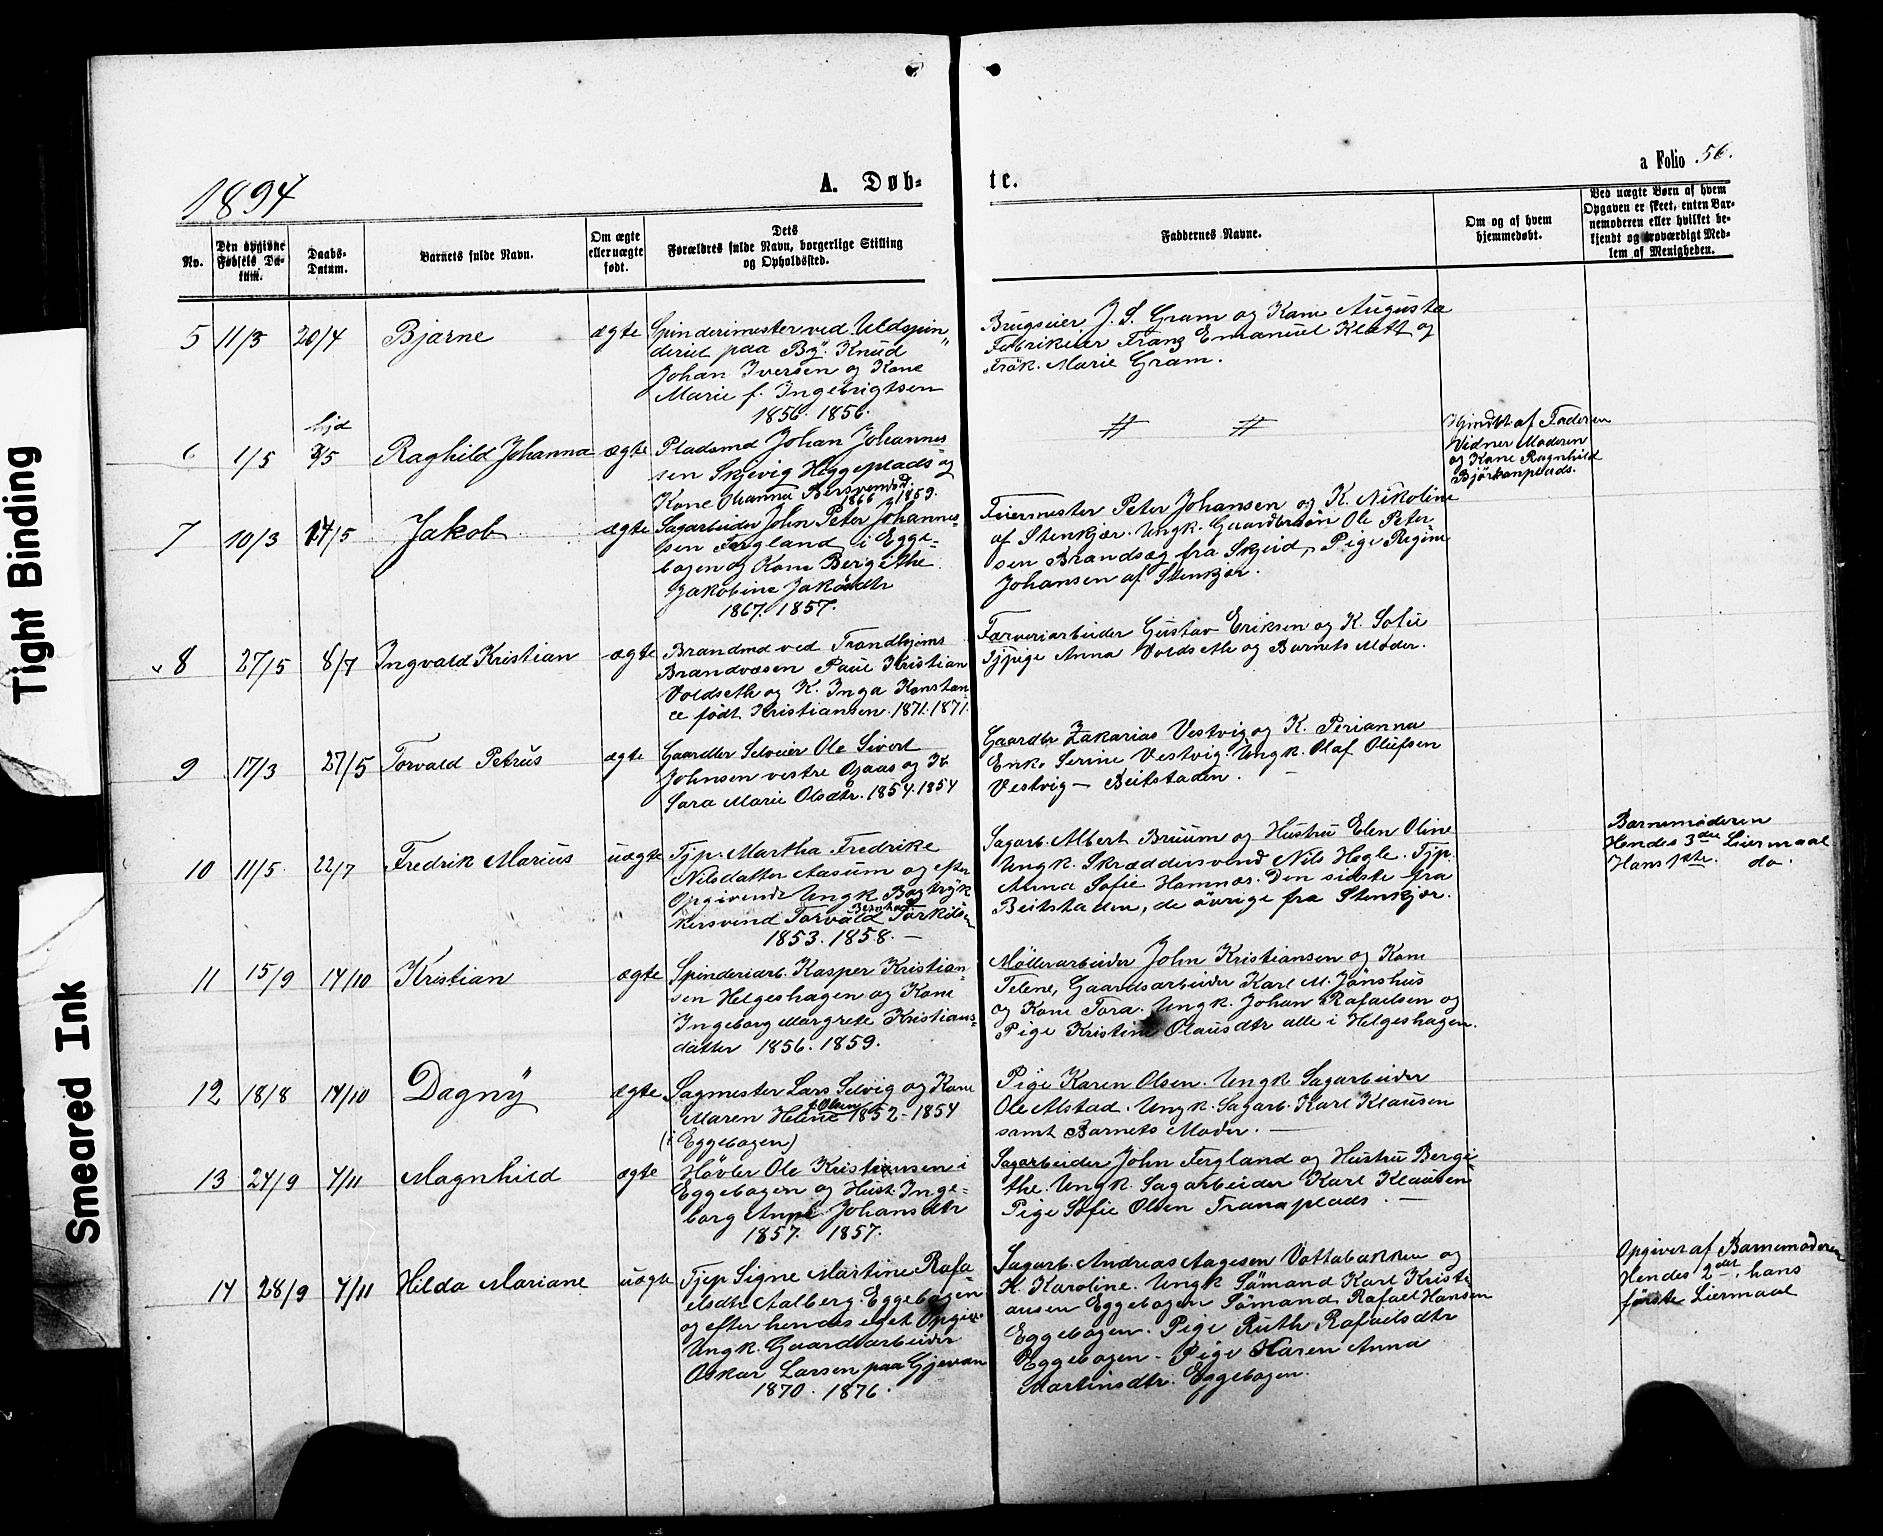 Tight Binding
Smeared Ink
1894
A. Døb-
te.
a Folio 56.
No.
Den opgivne
Fødsels Da-
tum.
Daabs-
Datum.
Barnets fulde Navn.
Om ægte
eller uægte
født.
Dets
Forældres fulde Navn, borgerlige Stilling
og Opholdssted.
Faddernes Navne.
Om og af hvem
hjemmedøbt.
Ved uægte Børn af hvem
Opgaven er skeet, enten Bar-
nemoderen eller hvilket be-
kjendt og troværdigt Med-
lem af Menigheden.
5 11/3 20/4 Bjarne ægte
Spinderimester ved Uldspin-
deriet paa By: Knud
Johan Iversen og Kone
Marie f. Ingebrigtsen
1856. 1856.
Brugseier J. S. Gram og Kone Augusta
Fabrikeier Franz Emanuel Klatt og
Frøk. Marie Gram.
6 1/5 hjd 3/5 Raghild Johanna ægte
Pladsmd Johan Johannes-
sen Skjevig Heggeplads og
Kone Hanna Bersvendsd.
1866 1859.
Hjmdøbt af Faderen
Vidner Moderen
og Kone Ragnhild
Bjørkanplads.
7 10/3 14/5 Jakob ægte
Sagarbeider John Peter Johannes-
sen Fergland i Egge-
bogen og Kone Bergithe
Jakobine Jakobsdtr
1867. 1857.
Feiermester Peter Johansen og K. Nikoline
af Stenkjær. Ungk. Gaardbrsøn Ole Peter-
sen Brandsæg fra Skjeid, Pige Regine
Johansen af Stenkjær.
8 27/5 8/7 Ingvald Kristian ægte
Brandmd ved Trondhjems
Brandvæsen Paul Kristian
Voldseth og K. Inga Konstan-
ce født Kristiansen. 1871. 1871.
Farveriarbeider Gustav Eriksen og K. Sofie
Tjpige Anna Voldseth og Barnets Moder.
9 17/3 27/5 Torvald Petrus ægte
Gaardbr Selveier Ole Sivert
Johnsen vestre Oxaas og K.
Sara Marie Olsdtr. 1854. 1854
Gaardbr Zakarias Vestvig og K. Perianna
Enke Serine Vestvig. Ungk. Olaf Olufsen
Vestvig — Beitstaden.
10 11/5 22/7 Fredrik Marius uægte
Tjp. Martha Fredrike
Nilsdatter Aasum og efter
Opgivende Ungk Bogtryk-
kersvend Torvald Bernhard Torkilsen
1853. 1858. —
Sagarb. Albert Bruum og Hustru Elen Oline
Ungk. Skræddersvend Nils Hegle. Tjp.
Anna Sofie Hamnes. Den sidste fra
Beitstaden, de øvrige fra Stenkjær.
Barnemoderen
Hendes 3die Leiermaal
Hans 1ste. do.
11 15/9 14/10 Kristian ægte
Spinderiarb. Kasper Kristian-
sen Helgeshagen og Kone
Ingeborg Margrete Kristians-
datter 1856. 1859.
Møllerarbeider John Kristiansen og Kone
Telene, Gaardsarbeider Karl M. Jønshus
og Kone Tora. Ungk. Johan Rafaelsen og
Pige Kristine Olausdtr alle i Helgeshagen.
12 18/8 14/10 Dagny ægte
Sagmester Lars Selvig og Kone
Maren Helene f. Olsen 1852 - 1854
(i Eggebogen)
Pige Karen Olsen. Ungk Sagarbeider
Ole Alstad. Ungk. Sagarb. Karl Klausen
samt Barnets Moder. —
13 24/9 4/11 Magnhild ægte
Høvler Ole Kristiansen i
Eggebogen og Hust. Inge-
borg Anne Johansdtr
1857. 1857.
Sagarbeider John Fergland og Hustru Bergi-
the. Ungk. Sagarbeider Karl Klausen
Pige Sofie Olsen Tranaplads. —
14 28/9 4/11 Hilda Mariane uægte
Tjep Signe Martine Rafa-
elsdtr Aalberg. Eggebogen
og efter hendes eget Opgiv.
Ungk. Gaardsarbeider
Oskar Larsen paa Gjevran
1870. 1876.
Sagarb. Andreas Aagesen Vattabakken og
K. Karoline. Ungk Sømand Karl Kristi-
ansen Eggebogen Sømand Rafael Hansen
Eggebogen. Pige Ruth Rafaelsdtr
Eggebogen. Pige Karen Anna
Martinsdtr. Eggebogen.
Opgivet af Barnemoderen
Hendes 2det, hans
første Leiermaal